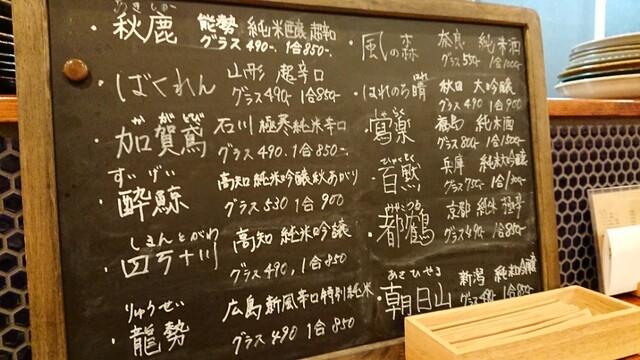 あきしか
秋鹿 能勢 純米吟醸 超辛
グラス490- 1合850-
ばくれん 山形 超辛口
グラス490- 1合850-
ががとび
加賀鳶 石川 極寒純米辛口
グラス490. 1合850-
すいげい
酔鯨 高知 純米吟醸秋あがり
グラス530 1合900
しまんとがわ
四万十川 高知 純米吟醸
グラス490, 1合850
りゅうせい
龍勢 広島 新風辛口特別純米
グラス490 1合850
風の森 奈良 純米酒
グラス550- 1合1000-
はれのち晴 秋田 大吟醸
グラス490 1合900
寫楽 福島 純米酒
グラス800- 1合1500-
ひゃくもく
百黙 兵庫 純米大吟醸
グラス750- 1合1300-
都鶴 京都 純米
グラス490- 1合850-
あさひやま
朝日山 新潟 純米吟醸
1合850-